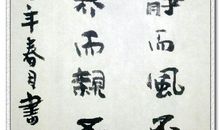 静而風不
养而親不
年春月書